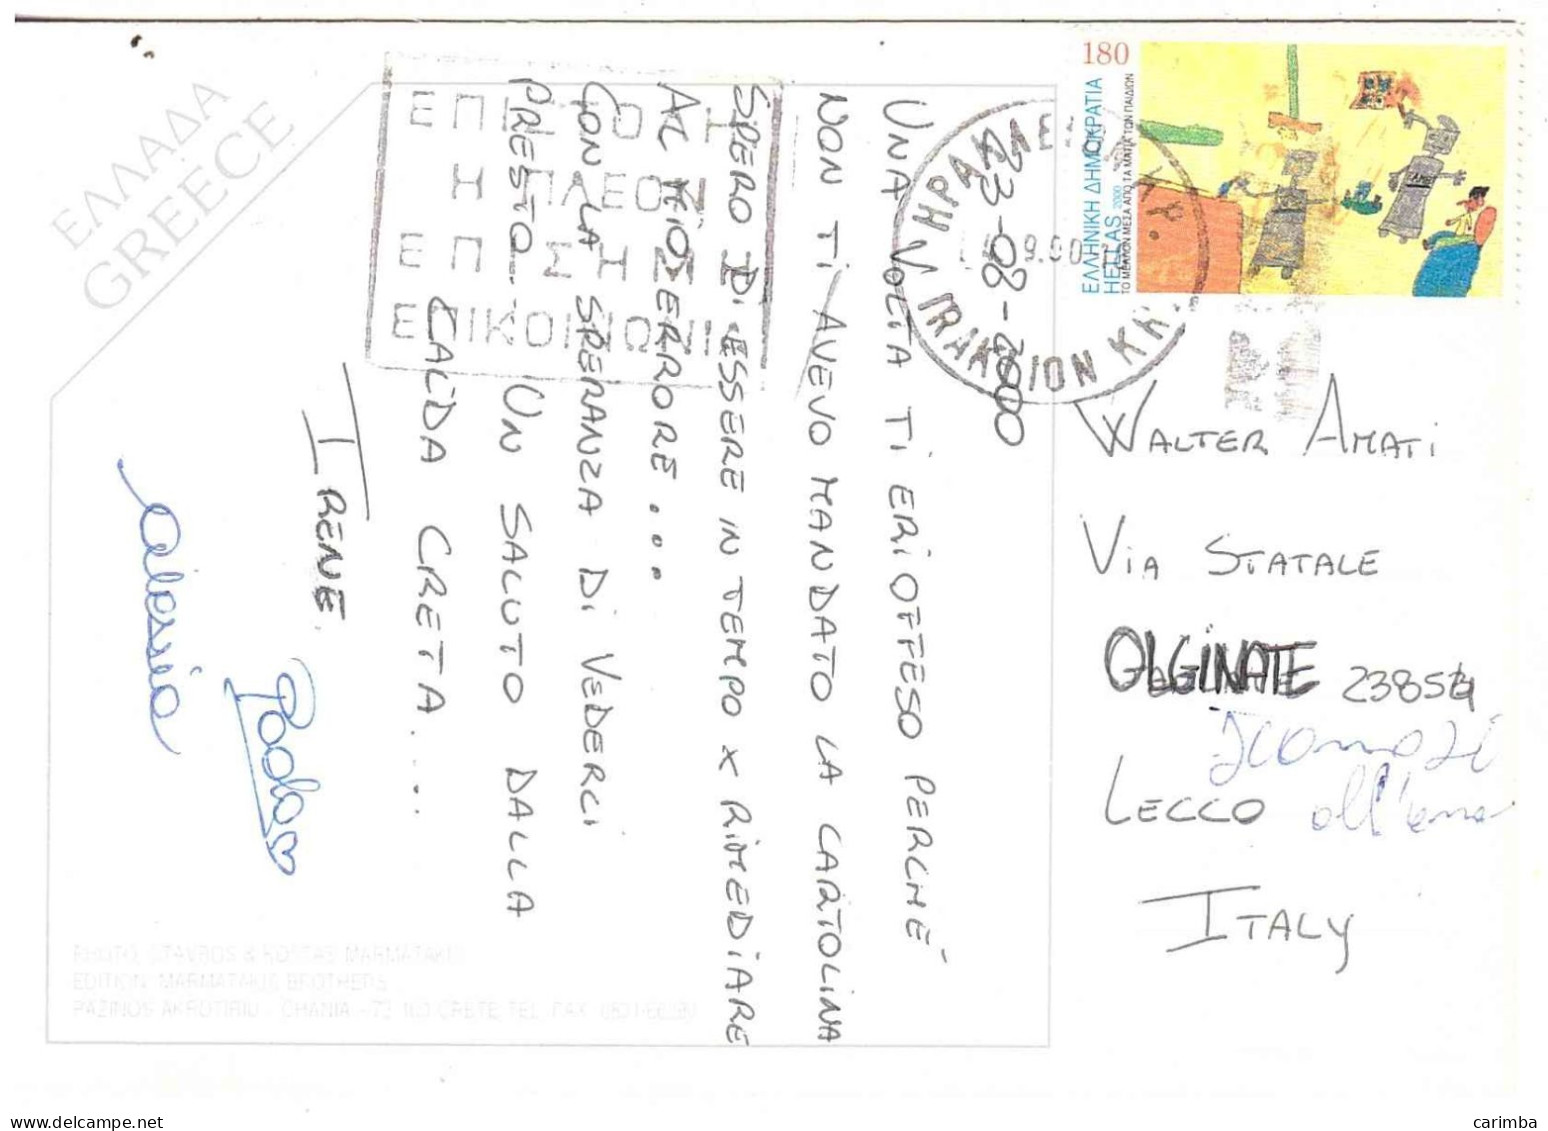 ΕΛΛΑΔΑ
GREECE
23-08-2000
UNA VOLTA TI ERI OFFESO PERCHÉ
NON TI AVEVO MANDATO LA CARTOLINA
SPERO DI ESSERE IN TEMPO X RIMEDIARE
AL MIO ERRORE...
CON LA SPERANZA DI VEDERCI
PRESTO... UN SALUTO DALLA
CALDA CRETA...
IRENE
Paola
alessio
180
ΕΛΛΗΝΙΚΗ ΔΗΜΟΚΡΑΤΙΑ
HELLAS 2000
ΤΟ ΜΕΛΛΟΝ ΜΕΣΑ ΑΠΟ ΤΑ ΜΑΤΙΑ ΤΩΝ ΠΑΙΔΙΩΝ
WALTER AMATI
VIA STATALE
OLGINATE 23854
LECCO
ITALY
PHOTO: STAVROS & KOSTAS MARMATAKIS
EDITION: MARMATAKIS BROTHERS
PAZINOS AKROTIRIU - CHANIA - 73 100 CRETE TEL. FAX
carimba